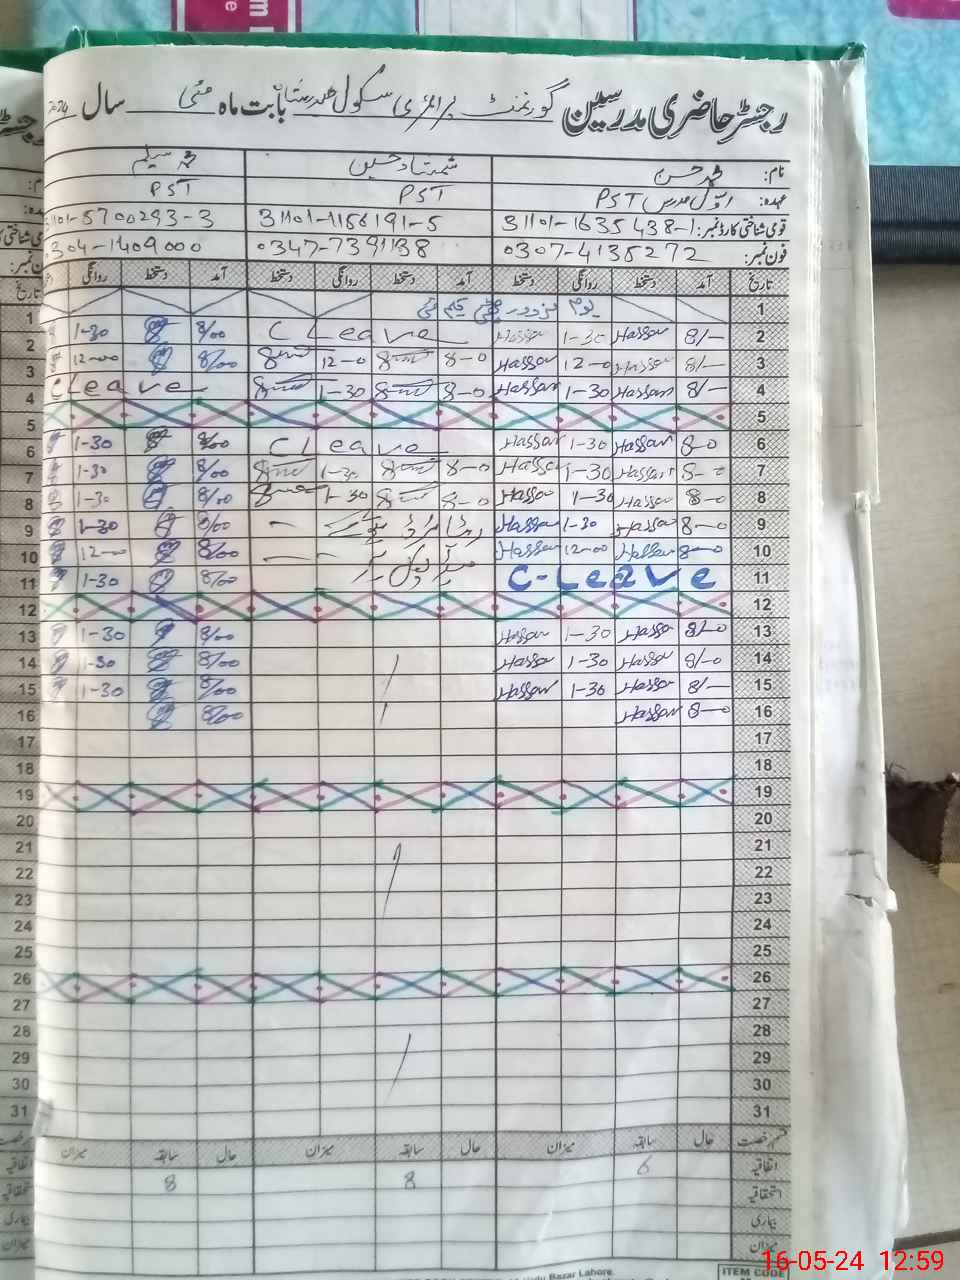 رجسٹر حاضری مدرسین گورنمنٹ پرائمری سکول بابت ماہ مئی سال
نام: محمد حسن شمشاد حسین محمد سلیم
عہدہ: PST PST PST
قومی شناختی کارڈ نمبر: 31101-1635438-1 31101-1156191-5 31101-5700293-3
فون نمبر: 0307-4135272 0347-7391138 0304-1409000
تاریخ آمد دستخط روانگی دستخط آمد دستخط روانگی دستخط آمد دستخط روانگی
1 یوم مزدور چھٹی یکم مئی
2 8/— Hassan 1-30 Hassan C Leave 8/00 1-30
3 8/— Hassan 12-0 Hassan 8-0 12-0 8/00 12-00
4 8/— Hassan 1-30 Hassan 8-0 1-30 C Leave
5
6 8-0 Hassan 1-30 Hassan C Leave 8/00 1-30
7 8-0 Hassan 1-30 Hassan 8-0 1-30 8/00 1-30
8 8-0 Hassan 1-30 Hassan 8-0 1-30 8/00 1-30
9 8-0 Hassan 1-30 Hassan 8/00 1-30
10 8-0 Hassan 12-00 Hassan 8/00 12-00
11 C-Leave 8/00 1-30
12
13 8/-0 Hassan 1-30 Hassan 8/00 1-30
14 8/-0 Hassan 1-30 Hassan 8/00 1-30
15 8/— Hassan 1-30 Hassan 8/00 1-30
16 8-0 Hassan 8/00
17
18
19
20
21
22
23
24
25
26
27
28
29
30
31
قسم رخصت حال سابقہ میزان حال سابقہ میزان حال سابقہ میزان
اتفاقیہ 6 8 8
استحقاقیہ
بیماری
میزان
ITEM CODE
Urdu Bazar Lahore.
16-05-24 12:59